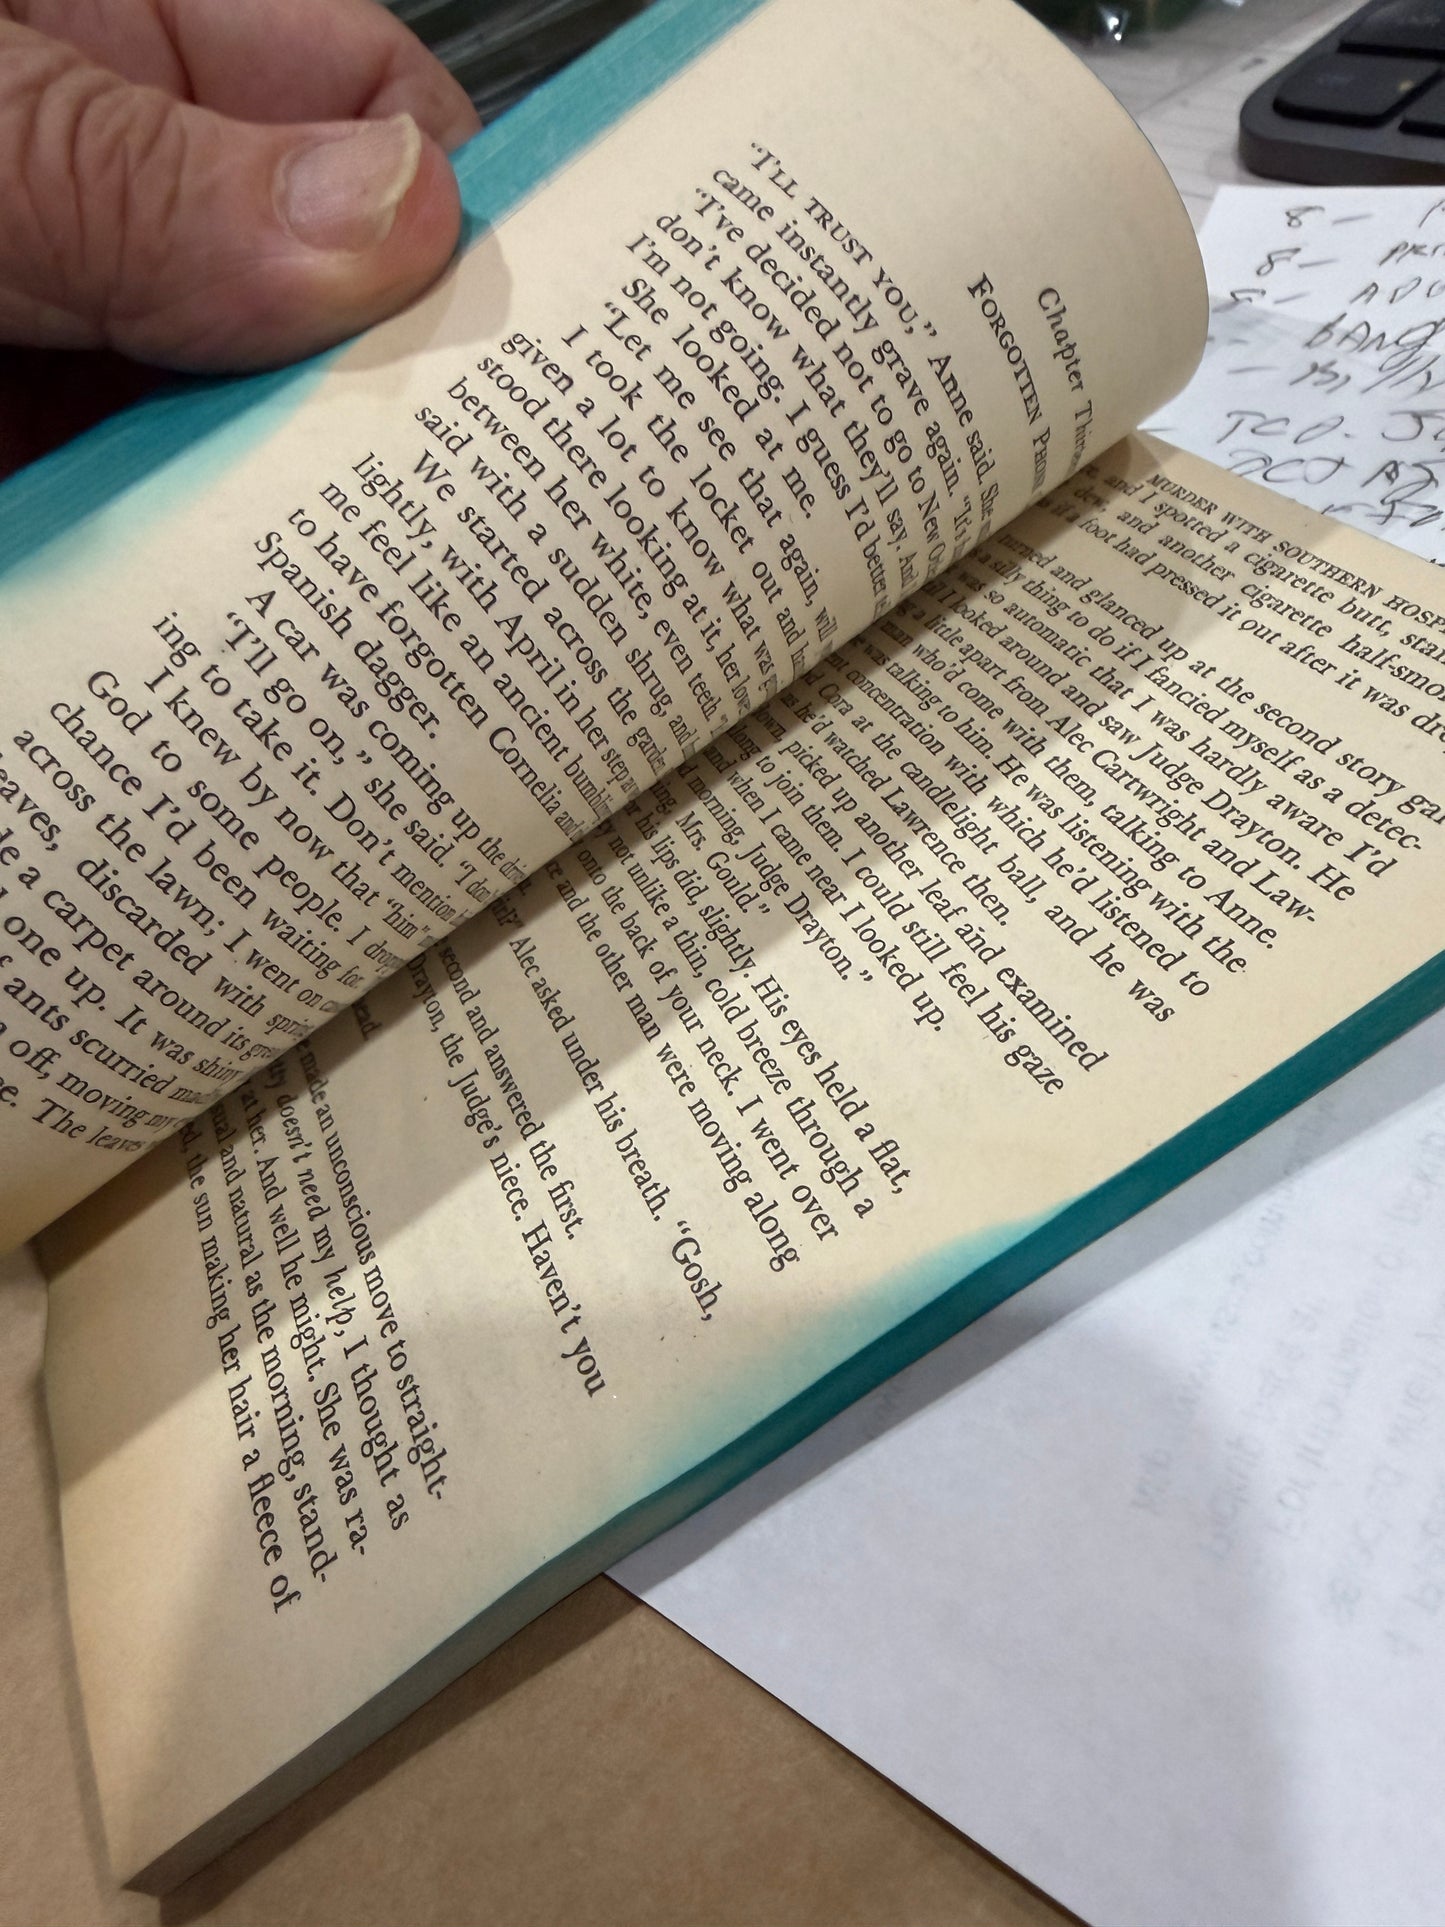 Chapter
FORGOTTEN
"I'LL TRUST YOU," Anne said. She
came instantly grave again.
"I've decided not to go to New
don't know what they'll say. And
I'm not going. I guess I'd better
She looked at me.
"Let me see that again, will
I took the locket out and
given a lot to know what was
stood there looking at it, her
between her white, even teeth.
said with a sudden shrug, and
We started across the garden,
lightly, with April in her step
me feel like an ancient
to have forgotten Cornelia and
Spanish dagger.
A car was coming up the drive.
"I'll go on," she said. "I
I knew by now that "him"
ing to take it. Don't mention
God to some people. I
chance I'd been waiting for.
across the lawn; I went on
leaves, discarded with
a carpet around its
one up. It was shiny
ants scurried
off, moving my
The leaves
MURDER WITH SOUTHERN
and I spotted a cigarette butt,
dew, and another cigarette
if a foot had pressed it out after it was
turned and glanced up at the second story
a silly thing to do if I fancied myself as a detec-
was so automatic that I was hardly aware I'd
I looked around and saw Judge Drayton. He
a little apart from Alec Cartwright and Law-
man who'd come with them, talking to Anne.
was talking to him. He was listening with the
concentration with which he'd listened to
Cora at the candlelight ball, and he was
as he'd watched Lawrence then.
picked up another leaf and examined
to join them. I could still feel his gaze
and when I came near I looked up.
morning, Judge Drayton."
Mrs. Gould."
his lips did, slightly. His eyes held a flat,
not unlike a thin, cold breeze through a
onto the back of your neck. I went over
and the other man were moving along
Alec asked under his breath. "Gosh,
second and answered the first.
Drayton, the Judge's niece. Haven't you
made an unconscious move to straight-
doesn't need my help, I thought as
at her. And well he might. She was ra-
and natural as the morning, stand-
the sun making her hair a fleece of
8 —
8 —
BANG
TCP.